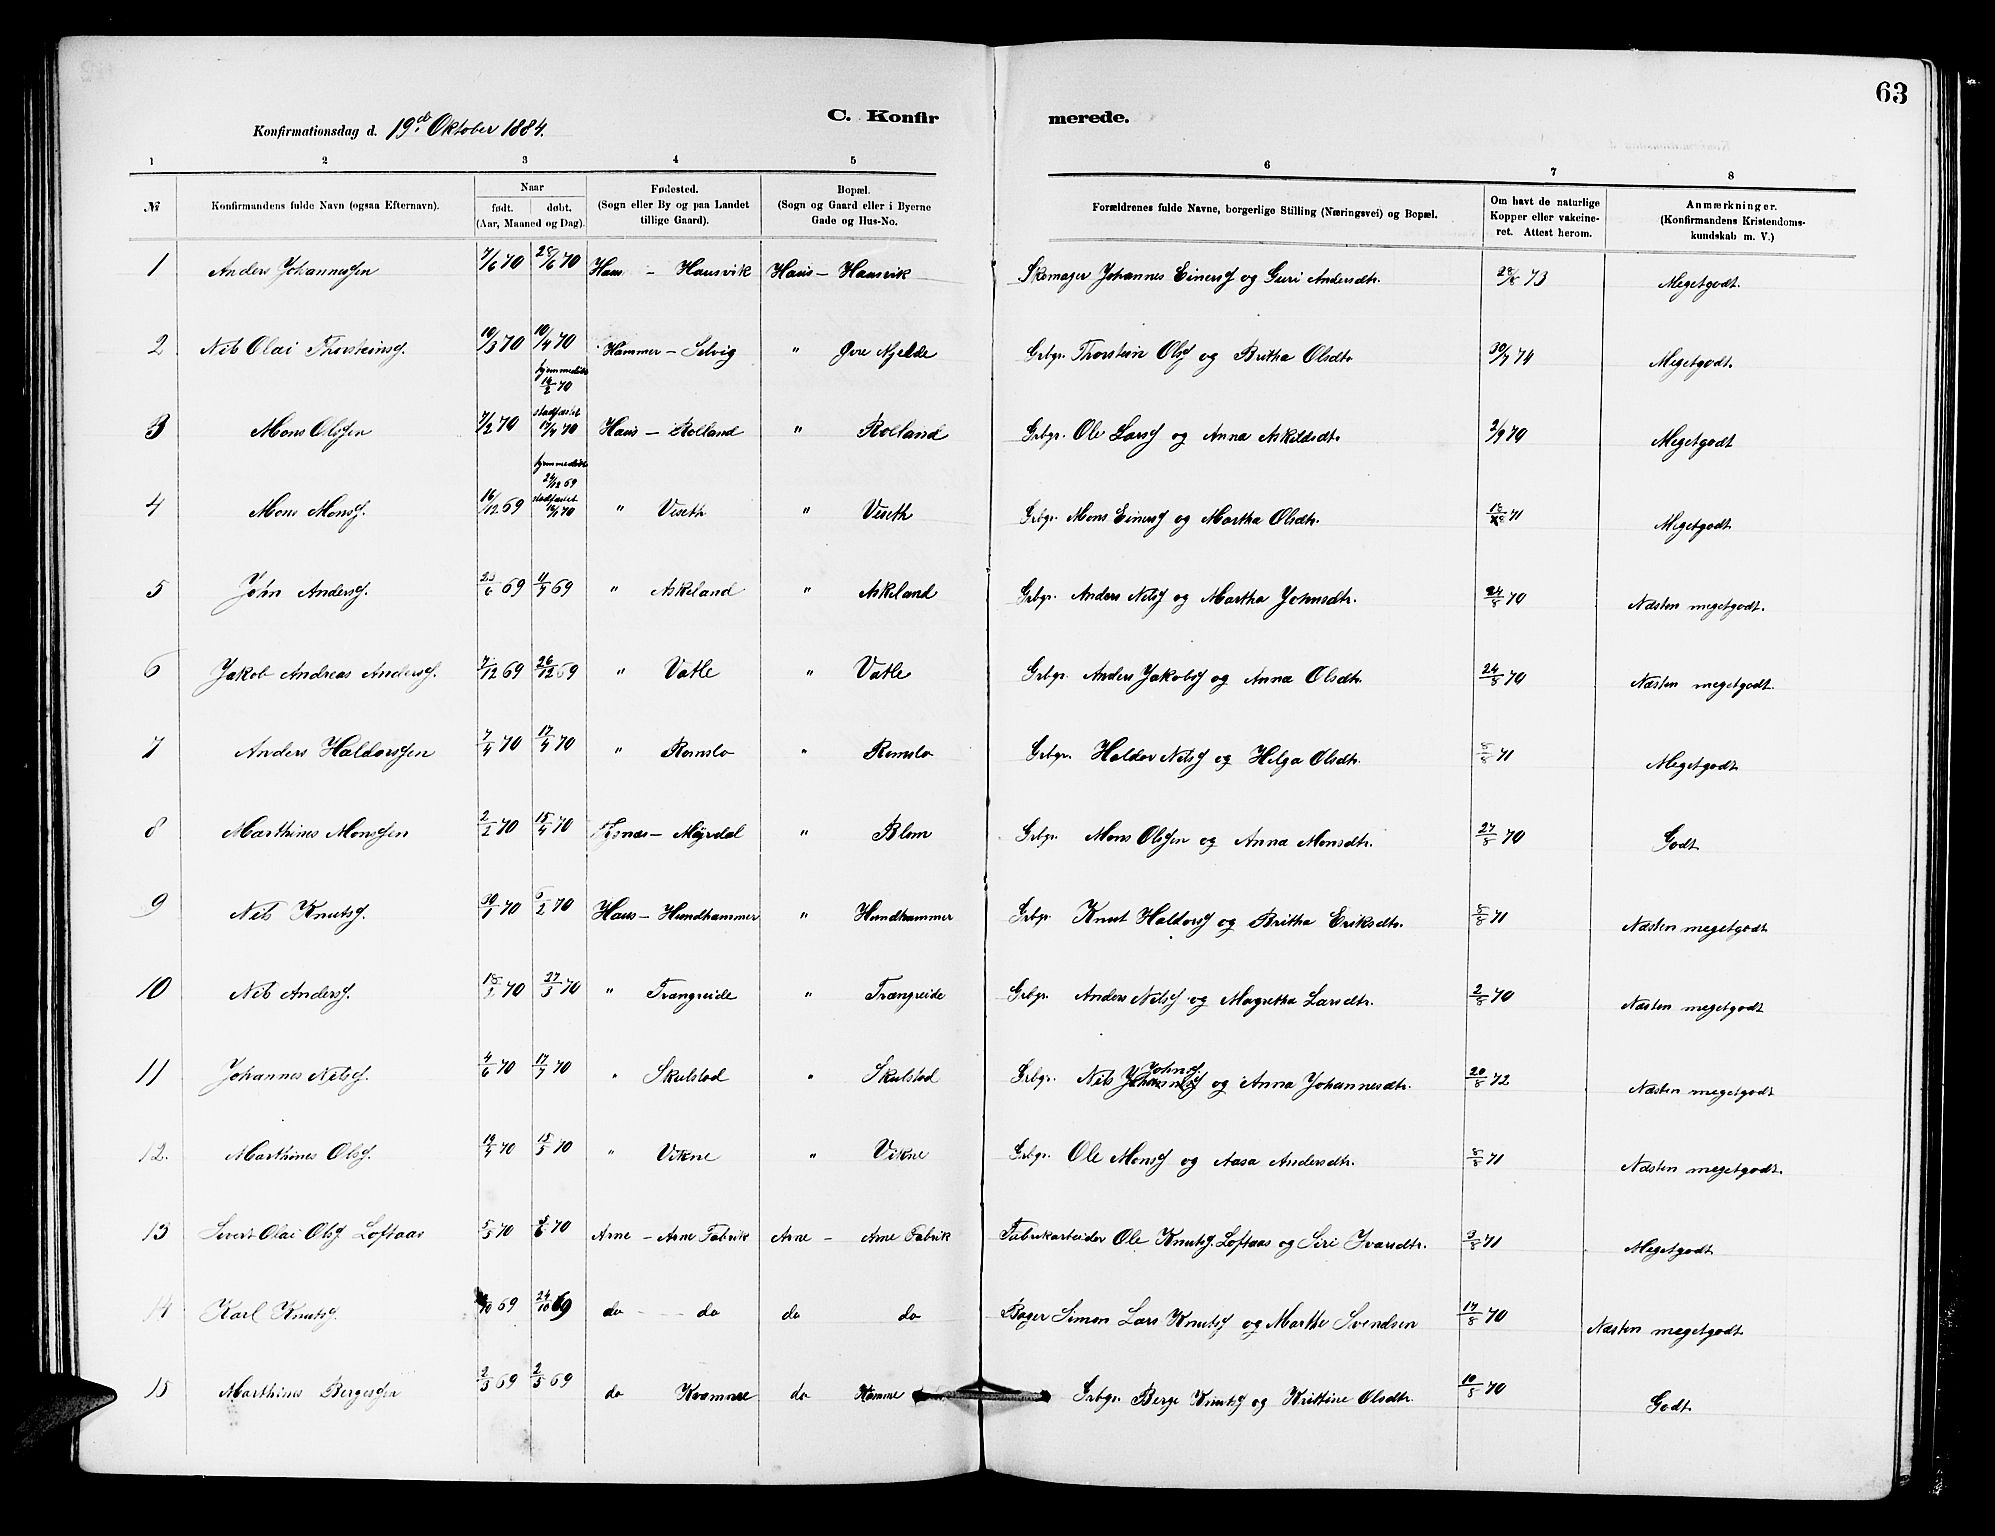 63
Konfirmationsdag d. 19de Oktober 1884.
C. Konfirmerede.
1 2 3 4 5 6 7 8
№ Konfirmandens fulde Navn (ogsaa Efternavn). Naar født. døbt. (Aar, Maaned og Dag). Fødested. (Sogn eller By og paa Landet tillige Gaard). Bopæl. (Sogn og Gaard eller i Byerne Gade og Hus-No. Forældrenes fulde Navne, borgerlige Stilling (Næringsvei) og Bopæl. Om havt de naturlige Kopper eller vakcineret. Attest herom. Anmærkninger. (Konfirmandens Kristendomskundskab m. V.)
1 Anders Johannessen 7/6 70 28/6 70 Haus – Hausvik Haus – Hausvik Skomager Johannes Einersf og Guri Andersdtr. 28/8 73 Megetgodt.
2 Nils Olai Thorsteinsf. 10/3 70 10/4 70 Hammer – Selvig " Øvre Mjelde Grbgr. Thorstein Olsf og Britha Olsdtr 30/7 74 Megetgodt.
3 Mons Olssen 7/2 70 hjemmedøbt 14/2 70 stadfæstet 17/4 70 Haus – Rolland " Rolland Grbgr. Ole Larsf og Anna Askildsdtr. 2/9 70 Megetgodt
4 Mons Monsf. 16/12 69 hjemmedøbt 24/12 69 stadfæstet 70 " Viseth " Viseth Grbgr. Mons Einersf og Martha Olsdtr. 18/8 71 Megetgodt
5 John Andersf. 23/6 69 11/7 69 " Askeland " Askeland Grbgr. Anders Nilsf og Martha Johnsdtr. 24/8 70 Næsten megetgodt.
6 Jakob Andreas Andersf. 7/12 69 26/12 69 " Vatle " Vatle Grbgr. Anders Jakobsf og Anna Olsdtr. 24/8 70 Næsten megetgodt.
7 Anders Haldorssen 7/4 70 17/4 70 " Romslo " Romslo Grbgr. Haldor Nilsf og Helga Olsdtr. 8/8 71 Megetgodt
8 Marthines Monssen 2/2 70 15/4 70 Tysnæs – Myrdal " Blom Grbgr. Mons Olssen og Anna Monsdtr. 27/8 70 Godt
9 Nils Knutsf. 30/1 70 6/2 70 Haus – Hundhammer " Hundhammer Grbgr. Knut Haldorsf og Britha Eriksdtr. 8/8 71 Næsten megetgodt
10 Nils Andersf. 18/3 70 27/3 70 " Trængreide " Trængreide Grbgr. Anders Nilsf og Magretha Larsdtr. 2/8 70 Næsten megetgodt
11 Johannes Nilsf. 4/6 70 17/7 70 " Skulstad " Skulstad Grbgr. Nils Johnsf og Anna Johannesdtr. 20/8 72 Næsten megetgodt
12. Marthines Olsf. 19/4 70 15/5 70 " Vikne " Vikne Grbgr. Ole Monsf og Aasa Andersdtr. 8/8 71 Næsten megetgodt.
13 Sivert Olai Olsf Loftaas 5/5 70 /6 70 Arne – Arne Fabrik Arne – Arne Fabrik Fabrikarbeider Ole Knutsf. Loftaas og Siri Ivarsdtr. 3/8 71 Megetgodt
14 Karl Knutsf. /10 69 24/10 69 do – do do do Bager Simon Lars Knutsf og Marthe Svendsen 17/8 70 Næsten megetgodt
15 Marthines Bergessen 2/3 69 2/5 69 do Kvamme do Kvamme Grbgr. Berge Knutsf og Kristine Olsdtr. 10/8 70 Godt